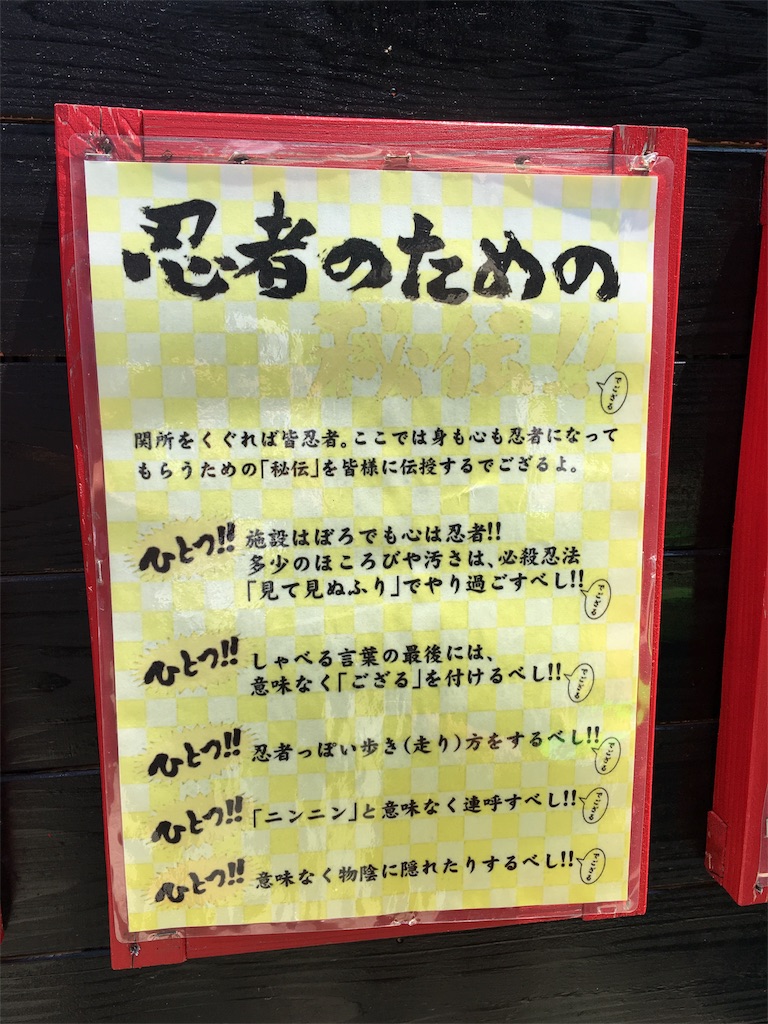 忍者のための
秘伝!!
関所をくぐれば皆忍者。ここでは身も心も忍者になって
もらうための「秘伝」を皆様に伝授するでござるよ。
ひとつ!!
施設はぼろでも心は忍者!!
多少のほころびや汚さは、必殺忍法
「見て見ぬふり」でやり過ごすべし!!
ひとつ!!
しゃべる言葉の最後には、
意味なく「ござる」を付けるべし!!
ひとつ!!
忍者っぽい歩き(走り)方をするべし!!
ひとつ!!
「ニンニン」と意味なく連呼すべし!!
ひとつ!!
意味なく物陰に隠れたりするべし!!